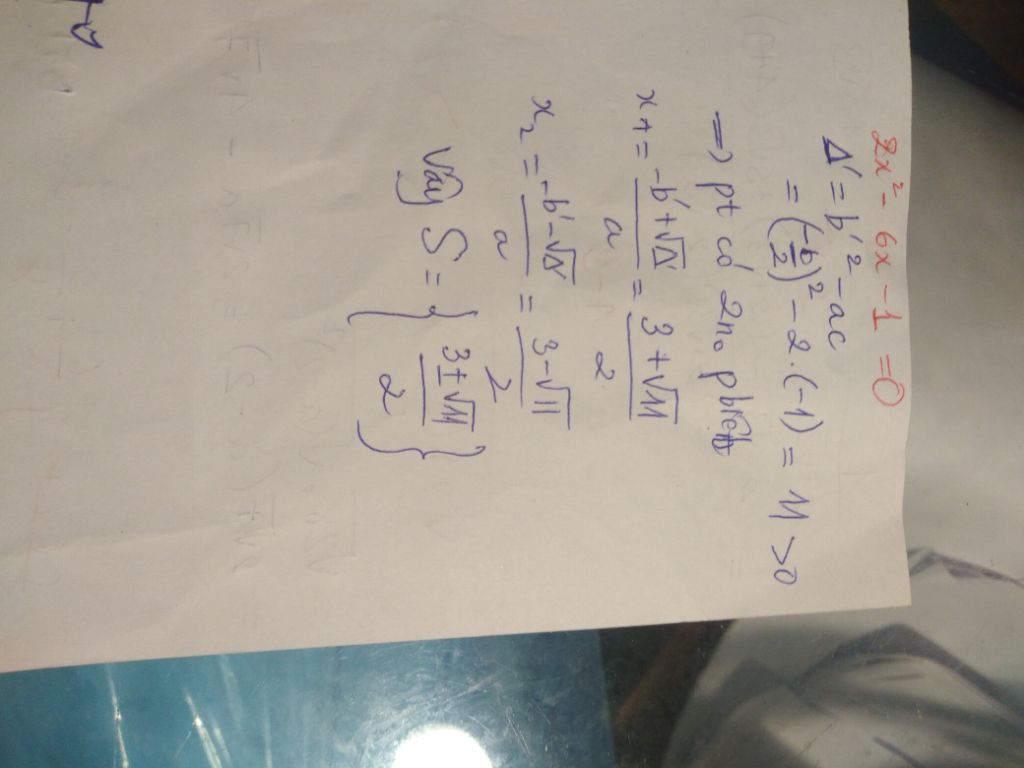 2x² - 6x - 1 = 0
Δ' = b'² - ac
= (-6/2)² - 2.(-1) = 11 > 0
=> pt có 2 no pbiệt
x1 = -b'+√Δ'/a = 3+√11/2
x2 = -b'-√Δ'/a = 3-√11/2
Vậy S = { 3±√11/2 }